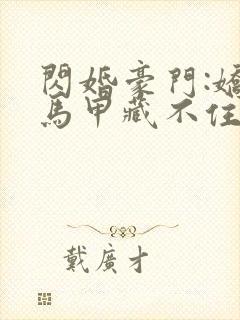 閃婚豪門:嬌
馬甲藏不住
戴廣才